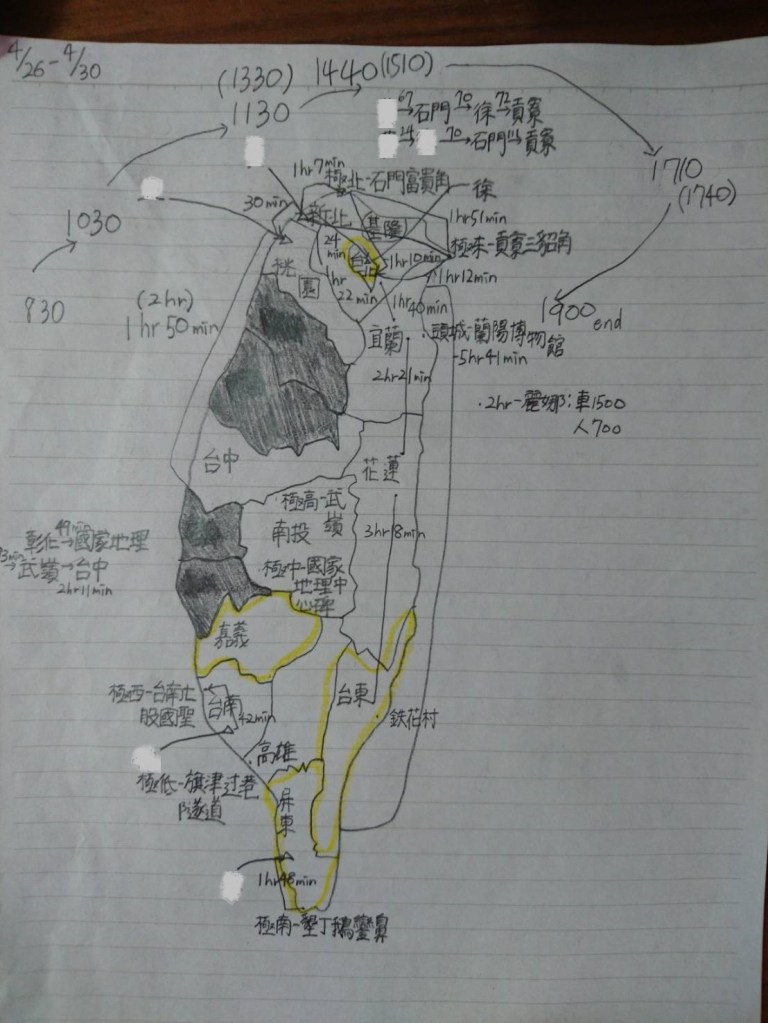 4/26-4/30
(1330) 1440(1510)
1130
67→石門70→徐72→貢寮
24→ 70→石門111→貢寮
1710
(1740)
1hr7min
極北-石門富貴角
徐
30min
新北
基隆
1hr51min
1030
極東-貢寮三貂角
24
min
台北
1hr10min
1hr12min
桃園
1hr
22min
1hr
40min
830
(2hr)
1hr50min
1900 end
宜蘭
頭城-蘭陽博物館
-5hr41min
2hr21min
·2hr-麗娜:車1500
人700
台中
花蓮
極高-武嶺
南投
3hr18min
極中-國家
地理中
心碑
彰化49min→國家地理
→武嶺→台中
2hr11min
嘉義
極西-台南七
股國聖
台南
42min
台東
鉄花村
高雄
極低-旗津过巷
隧道
屏東
1hr48min
極南-墾丁鵝鑾鼻